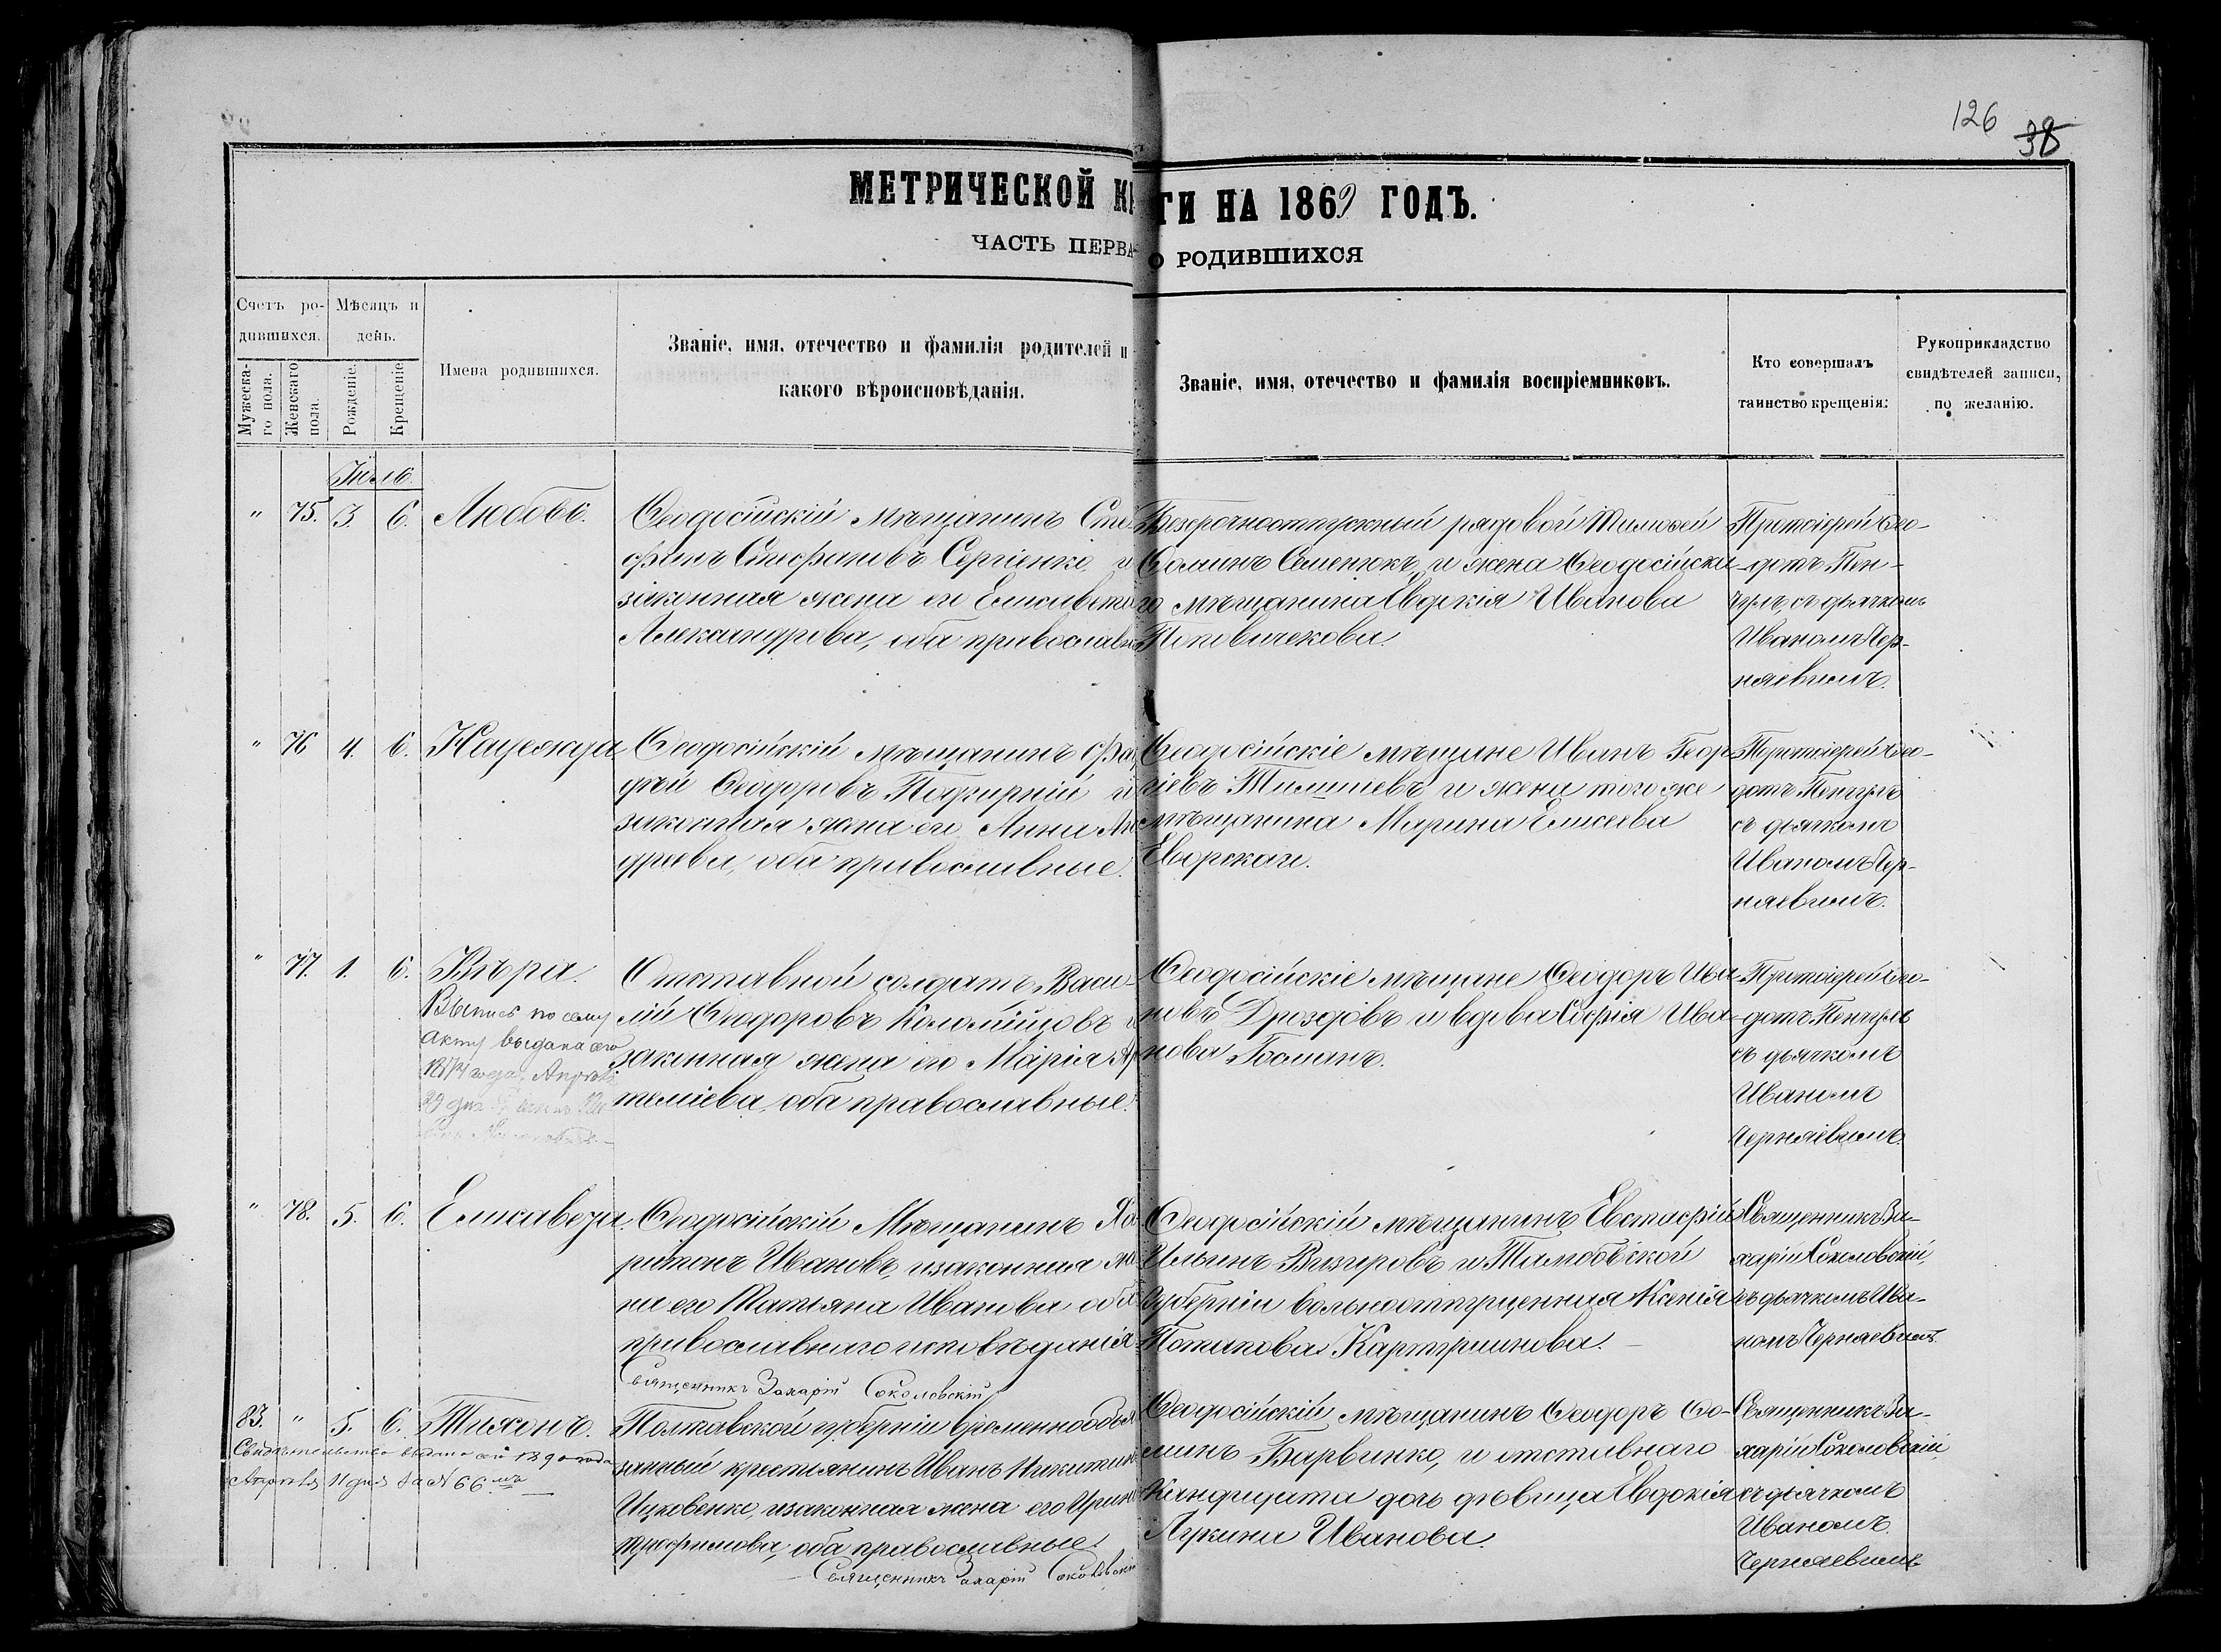 126 38
МЕТРИЧЕСКОЙ КН ГИ НА 1869 ГОДЪ.
ЧАСТЬ ПЕРВА О РОДИВШИХСЯ
Счетъ ро-
дившихся.
Мужеска-
го пола.
Женскаго
пола.
Мѣсяцъ и
день.
Рожденіе.
Крещеніе
Имена родившихся.
Званіе, имя, отечество и фамилія родителей и
какого вѣроисповѣданія.
Званіе, имя, отечество и фамилія воспріемниковъ.
Кто совершалъ
таинство крещенія:
Рукоприкладство
свидѣтелей записи,
по желанію.
Іюль
" 75. 3. 6. Любовь.
Ѳеодосійскій мѣщанинъ Сте
фанъ Стефановъ Сергіенко, и
законная жена его Елисавета
Александрова, оба православн
Безсрочноотпускный рядовой Тимоѳей
Ѳоминъ Семенюкъ и жена Ѳеодосійска
го мѣщанина Евдокія Иванова
Поповичекова.
Протоіерей Ѳео-
дотъ Пен-
чулъ, съ дьячкомъ
Иваномъ Чер-
няевимъ.
" 76 4. 6. Надежда
Ѳеодосійскій мѣщанинъ Ѳад
дѣй Ѳеодоровъ и
законная жена его Анна Ан
дреева, оба православные.
Ѳеодосійскіе мѣщане Иванъ Геор
гіевъ и жена того же
мѣщанина Марина Елисеева
Протоіерей Ѳео-
дотъ Пенчулъ
съ дьячкомъ
Иваномъ Чер-
няевимъ.
" 77. 1. 6. Вѣра.
Выпись по сему
акту выдана сего
1874 года, Апрѣля
29 дня
Отставной солдатъ Васи-
лій Ѳеодоровъ Коломійцовъ и
законная жена его Марія Ар
теміева, оба православные.
Ѳеодосійскіе мѣщане Ѳеодоръ Ива
новъ Дроздовъ и вдова Софія Ива-
нова
Протоіерей Ѳео-
дотъ Пенчулъ
съ дьячкомъ
Иваномъ
Черняевимъ.
" 78. 5. 6. Елисавета.
Ѳеодосійскій Мѣщанинъ Ха
ритонъ Ивановъ, и законная же
на его Татьяна Иванова оба
православнаго исповѣданія
Священникъ Захарій Соколовскій
Ѳеодосійскій мѣщанинъ Евстафій
Ильинъ Визировъ и Тамбовской
Губерніи вольноотпущенная Ксенія
Потапова
Священникъ За-
харій Соколовскій,
съ дьячкомъ Ива-
номъ Черняевимъ.
83. " 5. 6. Тихонъ.
Свидѣтельство видано 1890 года
Апрѣля 11 дня за № 66 мъ
Полтавской губерніи временнообя
занный крестьянинъ Иванъ Никитинъ
Ицковенко, и законная жена его Ирин
Трофимова, оба православные.
Священникъ Захарій Соколовскій
Ѳеодосійскій мѣщанинъ Ѳеодоръ Ѳо-
минъ Барвинко, и отставнаго
Кандидата дочь дѣвица Евдокія
Лукина Иванова.
Священникъ За-
харій Соколовскій,
съ дьячкомъ
Иваномъ
Черняевимъ